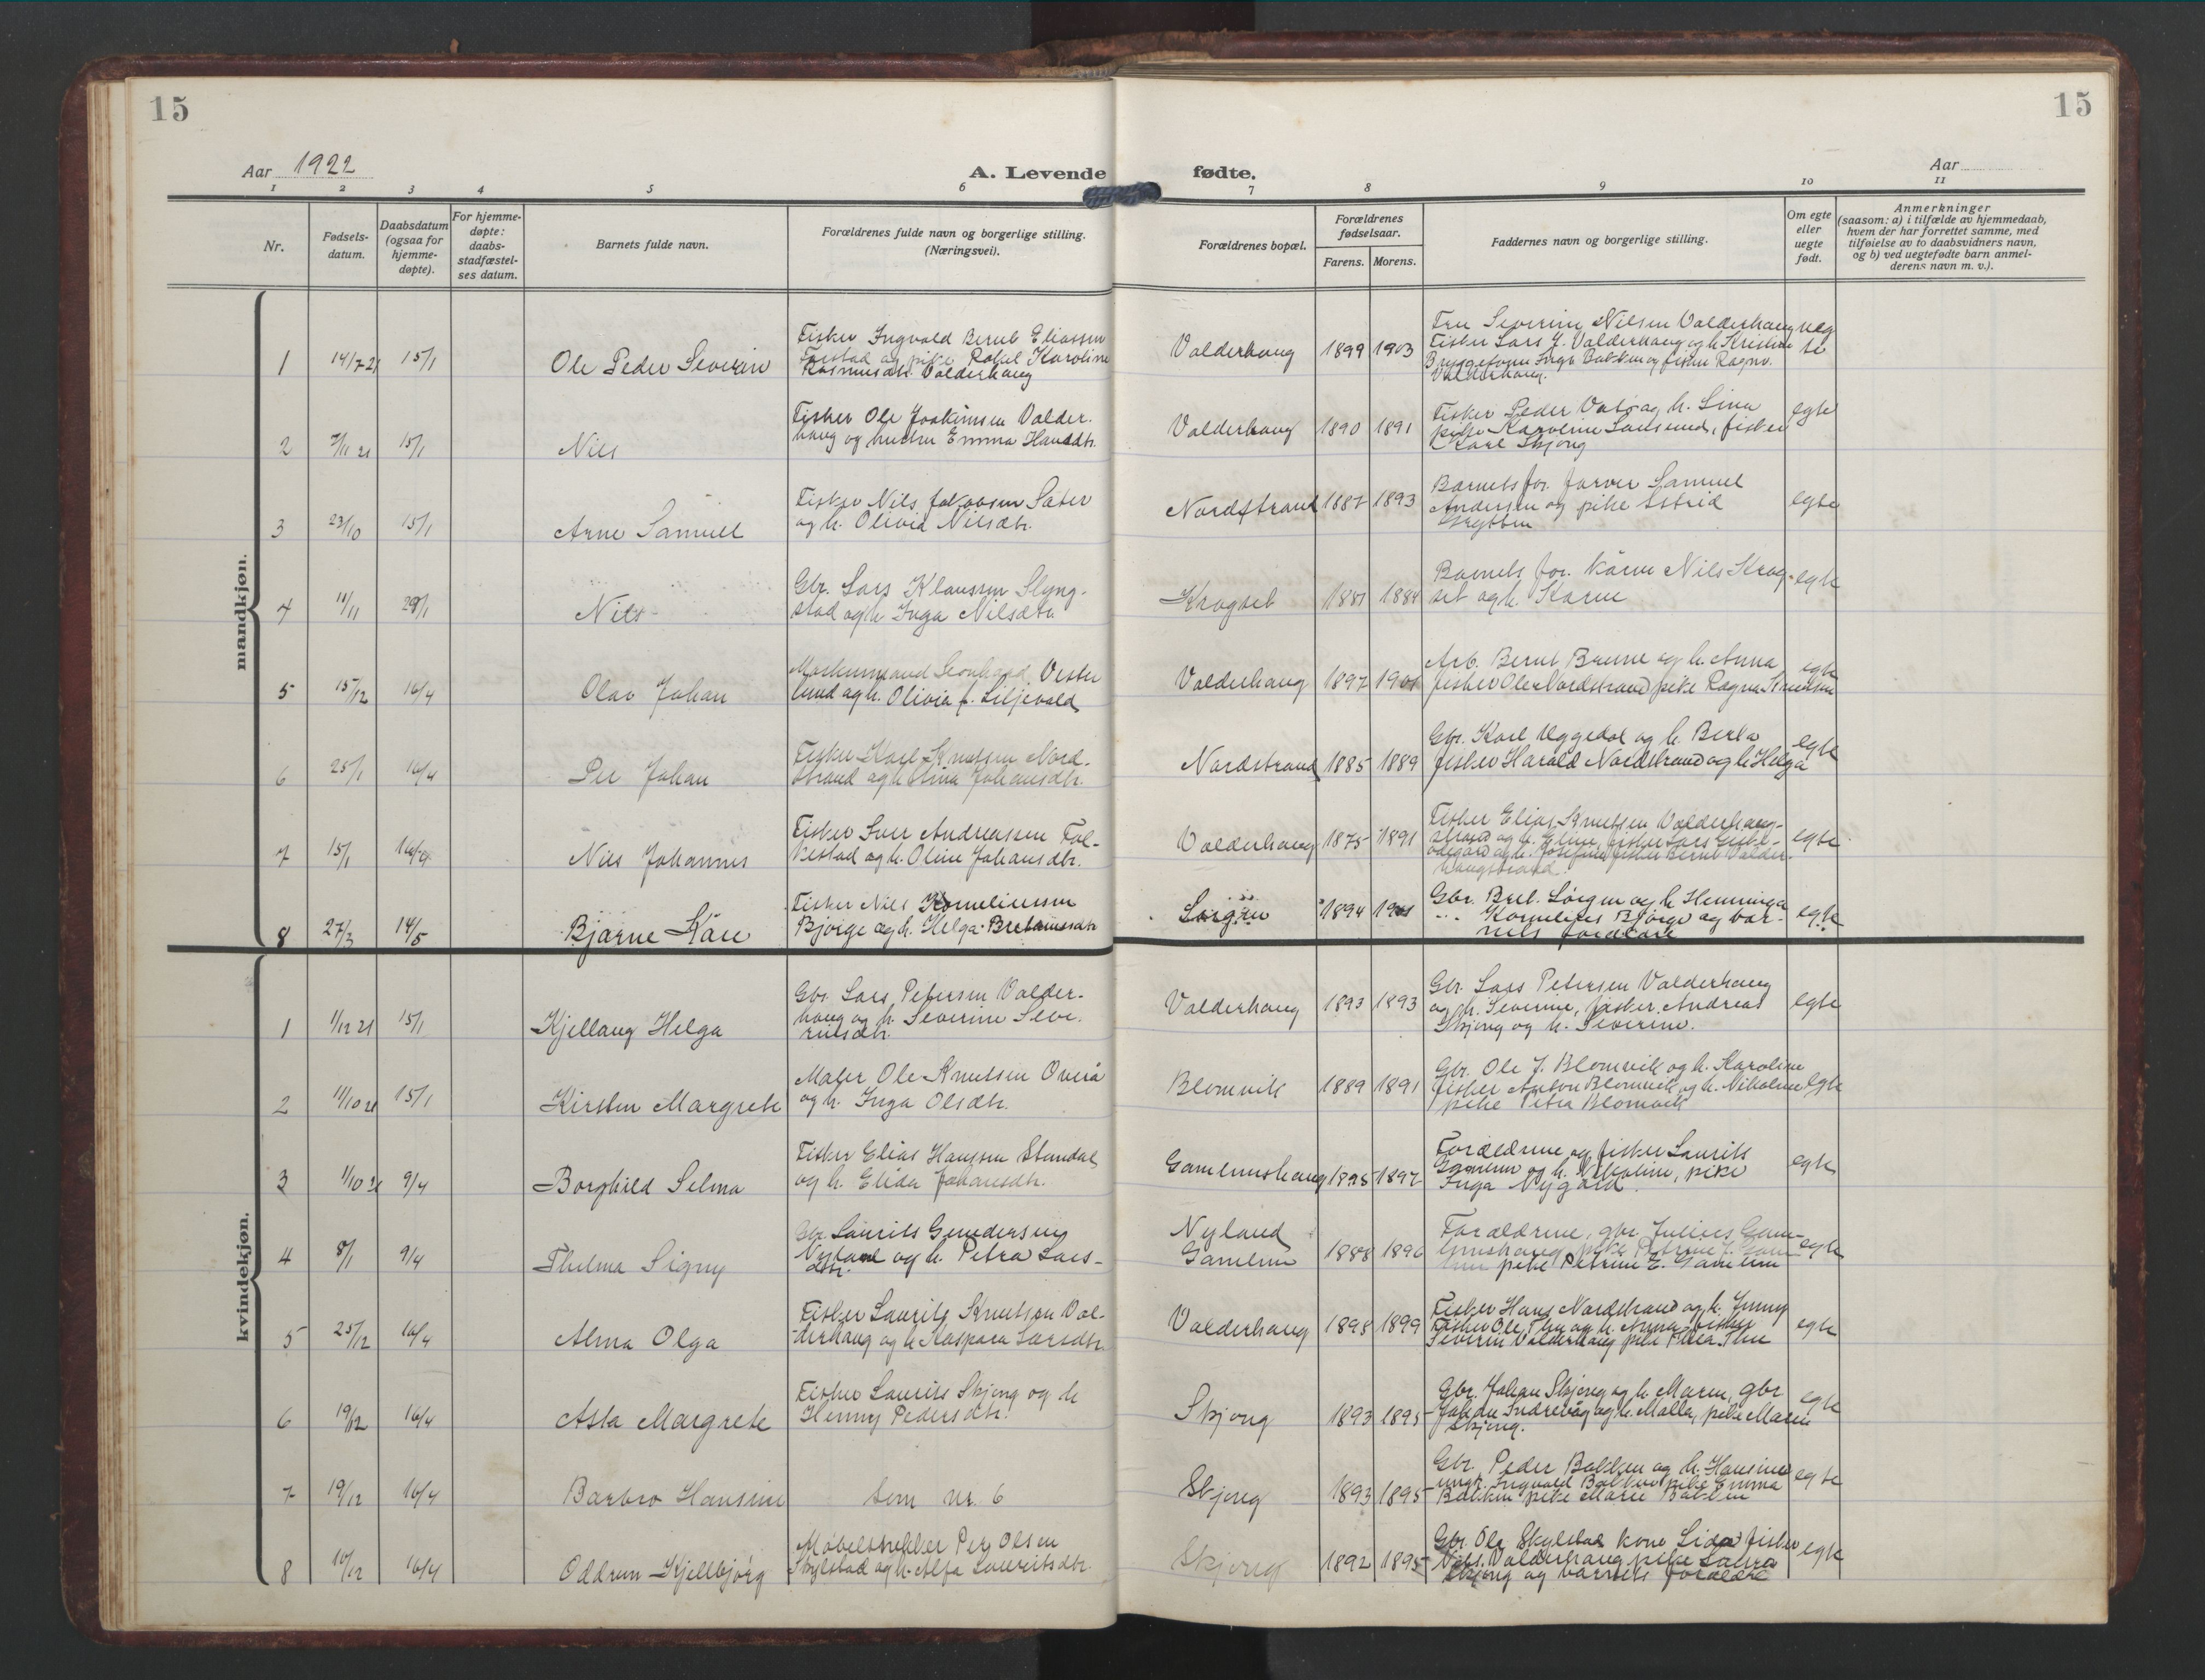 15
15
Aar 1922
A. Levende fødte.
Aar
1 2 3 4 5 6 7 8 9 10 11
Nr.
Fødsels-
datum.
Daabsdatum
(ogsaa for
hjemme-
døpte).
For hjemme-
døpte:
daabs-
stadfæstel-
ses datum.
Barnets fulde navn.
Forældrenes fulde navn og borgerlige stilling.
(Næringsvei).
Forældrenes bopæl.
Forældrenes
fødselsaar.
Farens. Morens.
Faddernes navn og borgerlige stilling.
Om egte
eller
uegte
født.
Anmerkninger
(saasom: a) i tilfælde av hjemmedaab,
hvem der har forrettet samme, med
tilføielse av to daabsvidners navn,
og b) ved uegtefødte barn anmel-
derens navn m. v.).
mandkjøn.
1 14/7 21 15/1 Ole Peder Severin
Fisker Ingvald Bernt Eliassen
og pike Rakel Karoline
Rasmusdtr. Valderhaug
Valderhaug 1899 1903
Fru Severine Nilsen Valderhaug
Fisker Lars J. Valderhaug og h. Kristine
og fisker Ragnv.
Valderhaug.
ueg
te
2 7/11 21 15/1 Nils
Fisker Ole Joakimsen Valder-
haug og hustru Emma Hansdtr.
Valderhaug 1890 1891
Fisker Peder og h. Lina
pike fisker
Karl Skjong
egte
3 23/10 15/1 Arne Samuel
Fisker Nils Jakobsen Sæter
og h. Olivia Nilsdtr.
Nordstrand 1887 1893
Barnets for. farver Samuel
Andersen og pike Astrid
Grytten
egte
4 11/11 29/1 Nils
Gbr. Lars Klaussen Slyng-
stad og h. Inga Nilsdtr.
Krogset 1881 1884
Barnets for. kårm Nils Krog-
set og h. Karen
egte
5 15/12 16/4 Olav Johan
Maskinmand Leonhard Vester
lund og h. Olivia f. Liljevald
Valderhaug 1897 1901
Arb. Bernt Brune og h. Anna
fisker Ole Nordstrand pike Ragna
egte
6 25/1 16/4 Per Johan
Fisker Karl Knutsen Nord-
strand og h. Lina Johansdtr.
Nordstrand 1885 1889
Gbr. Karl Uggedal og h. Berta
fisker Harald Nordstrand og h. Helga
egte
7 15/1 16/4 Nils Johannes
Fisker Iver Andreassen Fol-
kestad og h. Oline Johansdtr.
Valderhaug 1875 1891
Fisker Elias Knutsen Valderhaug-
strand og h. Eline, fisker Lars Giske-
ødegård og h. Josefine, fisker Bernt Valder-
haugstrand
egte
8 27/3 14/5 Bjarne Kåre
Fisker Nils Korneliussen
Bjørge og h. Helga
Sørgren 1894 1901
Gbr. Bret. Sørgren og h. Henninga
Kornelius Bjørge og bar-
nets forældre
egte
kvindekjøn.
1 1/12 21 15/1 Kjellaug Helga
Gbr. Lars Petersen Valder-
haug og h. Severine Seve-
rinsdtr.
Valderhaug 1893 1893
Gbr. Lars Petersen Valderhaug
og h. Severine, fisker Andreas
Skjong og h. Severine.
egte
2 11/10 21 15/1 Kirsten Margrete
Maler Ole Knutsen Overå
og h. Inga Olsdtr.
Blomvik 1889 1891
Gbr. Ole J. Blomvik og h. Karoline
fisker Anton Blomvik og h. Nikoline
pike Petra Blomvik
egte
3 1/10 21 9/4 Borghild Selma
Fisker Elias Hansen Standal
og h. Elida Johansdtr.
Gamlemshaug 1895 1897
Forældrene og fisker Laurits
Gamlem og h. Nikoline, pike
Inga Nygård.
egte
4 8/1 9/4 Thelma Signy
Gbr. Laurits Gundersen
Nyland og h. Petra Lars-
dtr.
Nyland
Gamlem
1888 1896
Forældrene, gbr. Julius Gam-
lemshaug, pike Petrine J. Gam
lem pike Petrine E. Gamlem
egte
5 25/12 16/4 Alma Olga
Fisker Laurits Knutsen Val-
derhaug og h. Kaspara Larsdtr.
Valderhaug 1895 1899
Fisker Hans Nordstrand og h. Jenny
Fisker Ole Thu og h. Anna fisker
Severin Valderhaug pike Thea Thu
egte
6 19/12 16/4 Asta Margrete
Fisker Laurits Skjong og h
Henny Pedersdtr.
Skjong 1893 1895
Gbr. Johan Skjong og h. Maren, gbr
Johan Indrevåg og h. Malla, pike Maren
Skjong.
egte
7 19/12 16/4 Barbro Hansine
Som nr. 6
Skjong 1893 1895
Gbr. Peder Bakken og h. Hansine
ungk. Ingvald Bakken pike Emma
Bakken pike Marie Bakken
egte
8 10/12 16/4 Oddrun Kjellbjørg
Møbelsnekker Per Olsen
Skylstad og h. Alfa Lauritsdtr.
Skjong 1892 1895
Gbr. Ole Skylstad kone Lida fisker
Nils Valderhaug pike Laura
Skjong og barnets forældre
egte